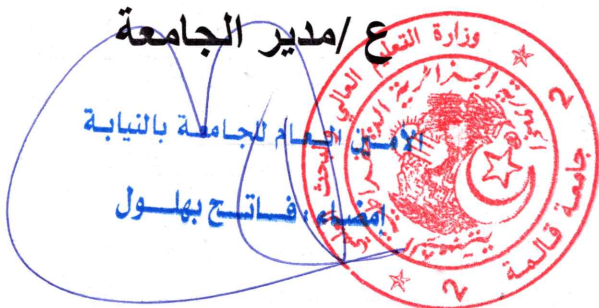 ع /مدير الجامعة
الامين العام للجامعة بالنيابة
إمضاء : فاتح بهلول
وزارة التعليم العالي والبحث العلمي
الجمهورية الجزائرية الديمقراطية الشعبية
جامعة قالمة
2 2